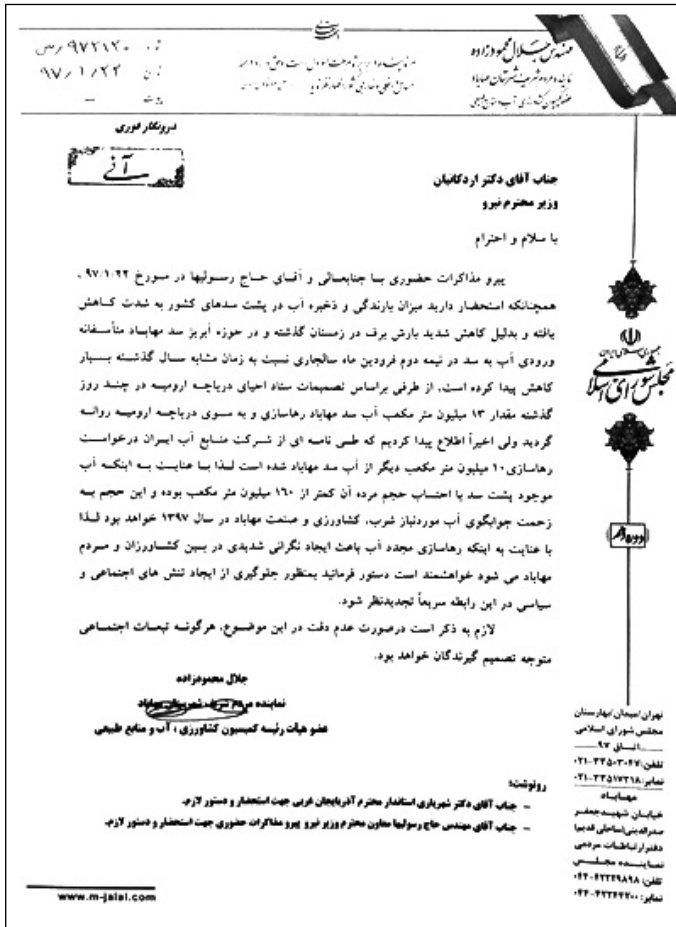 مهندس جلال محمودزاده
نماینده مردم شریف شهرستان مهاباد
عضو کمیسیون کشاورزی، آب و منابع طبیعی
۹۷۲۱۲۰/ص م
۹۷/۱/۲۲
دورنگار فوری
آنی
جناب آقای دکتر اردکانیان
وزیر محترم نیرو
با سلام و احترام
پیرو مذاکرات حضوری با جنابعالی و آقای حاج رسولیها در مورخ ۹۷/۱/۲۲،
همچنانکه استحضار دارید میزان بارندگی و ذخیره آب در پشت سدهای کشور به شدت کاهش
یافته و بدلیل کاهش شدید بارش برف در زمستان گذشته و در حوزه آبریز سد مهاباد متأسفانه
ورودی آب به سد در نیمه دوم فرودین ماه سالجاری نسبت به زمان مشابه سال گذشته بسیار
کاهش پیدا کرده است. از طرفی براساس تصمیمات ستاد احیای دریاچه ارومیه در چند روز
گذشته مقدار ۱۳ میلیون متر مکعب آب سد مهاباد رهاسازی و به سوی دریاچه ارومیه روانه
گردید ولی اخیراً اطلاع پیدا کردیم که طی نامه ای از شرکت منابع آب ایران درخواست
رهاسازی۱۰ میلیون متر مکعب دیگر از آب سد مهاباد شده است لذا با عنایت به اینکه آب
موجود پشت سد با احتساب حجم مرده آن کمتر از ۱۶۰ میلیون متر مکعب بوده و این حجم به
زحمت جوابگوی آب موردنیاز شرب، کشاورزی و صنعت مهاباد در سال ۱۳۹۷ خواهد بود لذا
با عنایت به اینکه رهاسازی مجدد آب باعث ایجاد نگرانی شدیدی در بین کشاورزان و مردم
مهاباد می شود خواهشمند است دستور فرمائید بمنظور جلوگیری از ایجاد تنش های اجتماعی و
سیاسی در این رابطه سریعاً تجدیدنظر شود.
لازم به ذکر است درصورت عدم دقت در این موضوع، هرگونه تبعات اجتماعی
متوجه تصمیم گیرندگان خواهد بود.
جلال محمودزاده
نماینده مردم شریف شهرستان مهاباد
عضو هیأت رئیسه کمیسیون کشاورزی، آب و منابع طبیعی
رونوشت:
– جناب آقای دکتر شهریاری استاندار محترم آذربایجان غربی جهت استحضار و دستور لازم.
– جناب آقای مهندس حاج رسولیها معاون محترم وزیر نیرو پیرو مذاکرات حضوری جهت استحضار و دستور لازم.
جمهوری اسلامی ایران
مجلس شورای اسلامی
دوره دهم
تهران/میدان/بهارستان
مجلس شورای اسلامی
اتاق ۹۷
تلفن: ۳۳۵۰۳۰۴۷-۰۲۱
نمابر: ۳۳۵۱۷۳۱۸-۰۲۱
مهاباد
خیابان شهیدجعفر
صدرالدینی(ساحلی قدیم)
دفترارتباطات مردمی
نماینده مجلس
تلفن: ۴۲۲۴۹۸۹۸-۰۴۴
نمابر: ۴۲۲۴۴۲۰۰-۰۴۴
www.m-jalal.com